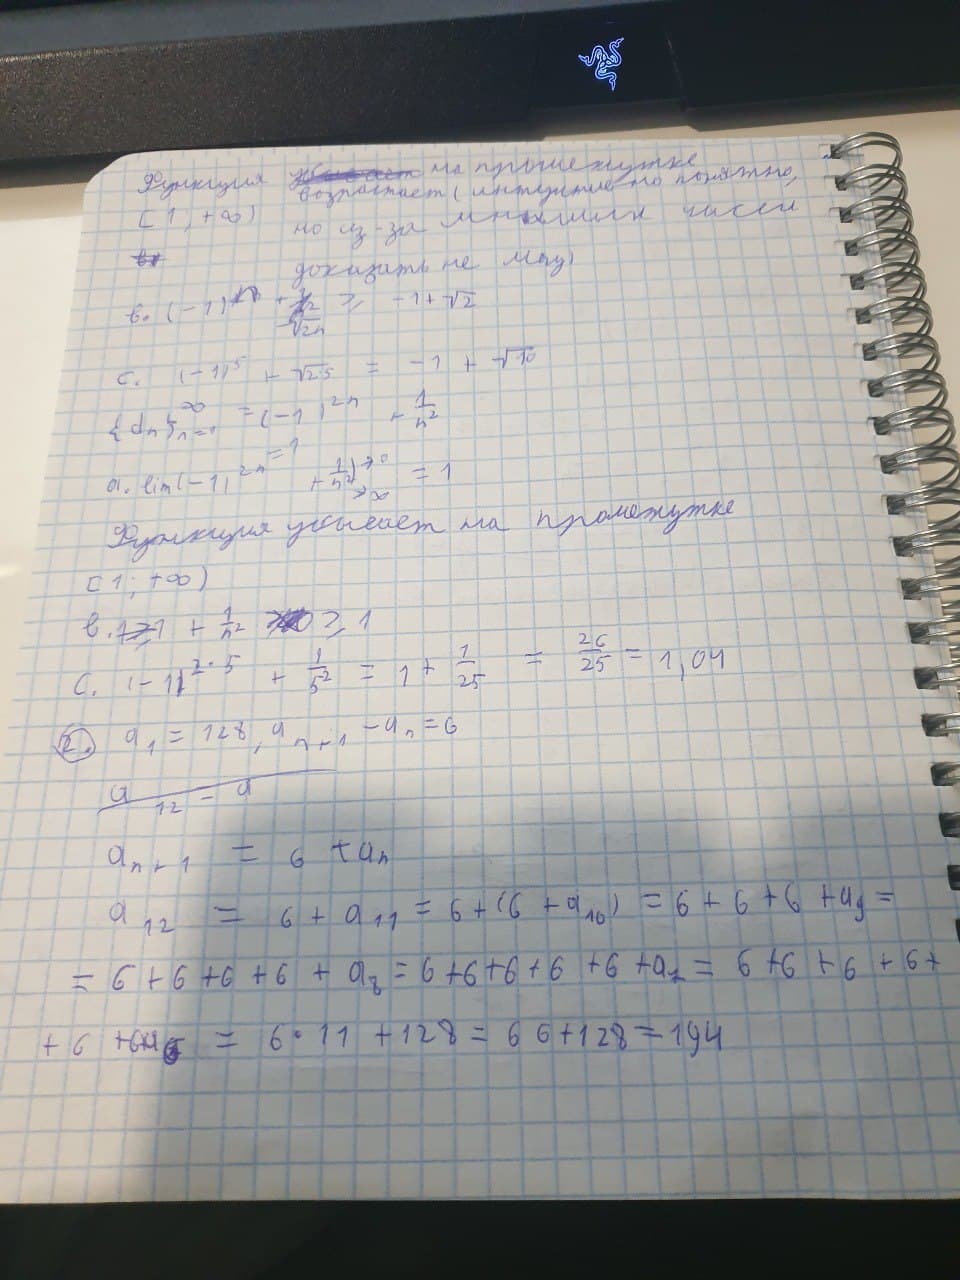 Функция возрастает на промежутке
[1, +∞) (интуитивно понятно,
но из-за мнимых чисел
доказать не могу)
b. (-1)ⁿ + √2n ≥ -1+√2
c. (-1)⁵ + √2·5 = -1 + √10
{dₙ}ₙ₌₁^∞ = (-1)²ⁿ + 1/n²
a. lim(-1)²ⁿ⁼¹ + 1/n² →0 →∞ = 1
Функция убывает на промежутке
[1; +∞)
b. 1 + 1/n² ≥ 1
c. (-1)²·⁵ + 1/5² = 1 + 1/25 = 26/25 = 1,04
2. a₁ = 128, aₙ₊₁ - aₙ = 6
a₁₂ = a
aₙ₊₁ = 6 + aₙ
a₁₂ = 6 + a₁₁ = 6 + (6 + a₁₀) = 6 + 6 + 6 + a₉ =
= 6 + 6 + 6 + 6 + a₈ = 6 + 6 + 6 + 6 + 6 + a₇ = 6 + 6 + 6 + 6 +
+ 6 + 6 + a₆ = 6 · 11 + 128 = 66 + 128 = 194